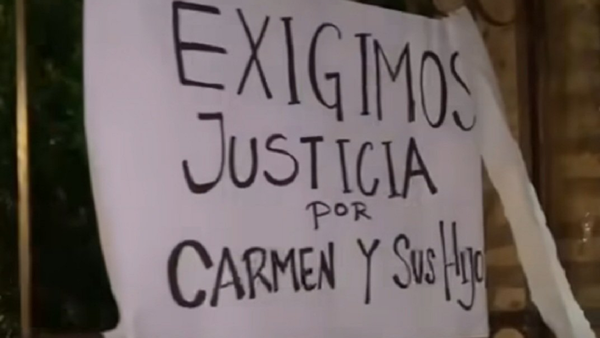 EXIGIMOS
JUSTICIA
POR
CARMEN Y SUS HIJO